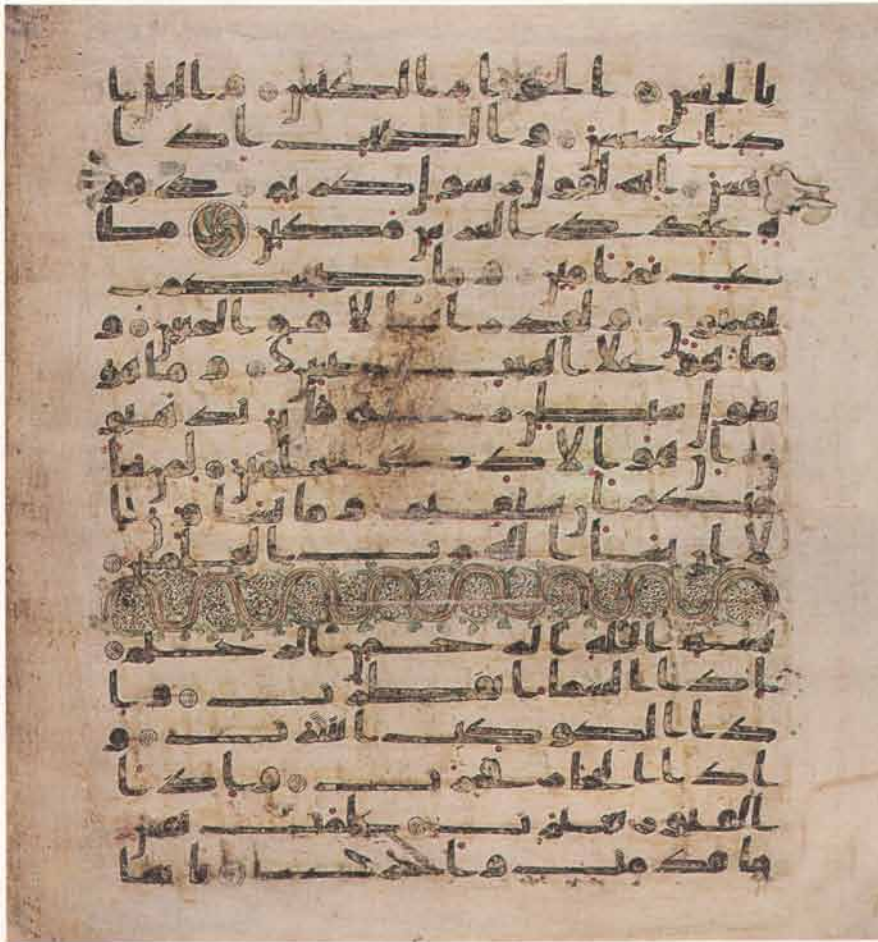 بالخنس الجوار الكنس واليل ا
ذا عسعس والصبح اذا
تنفس انه لقول رسول كريم ذي قو
ة عند ذي العرش مكين مطا
ع ثم امين وما صاحبكم
بمجنون ولقد راه بالافق المبين و
ما هو على الغيب بضنين وما هو
بقول شيطن رجيم فاين تذهبو
ن ان هو الا ذكر للعلمين لمن شا
منكم ان يستقيم وما تشاون ا
لا ان يشا الله رب العلمين
بسم الله الرحمن الرحيم
اذا السما انفطرت وا
ذا الكوكب انتثرت و
اذا البحار فجرت واذا
القبور بعثرت علمت نفس
ما قدمت واخرت يايها